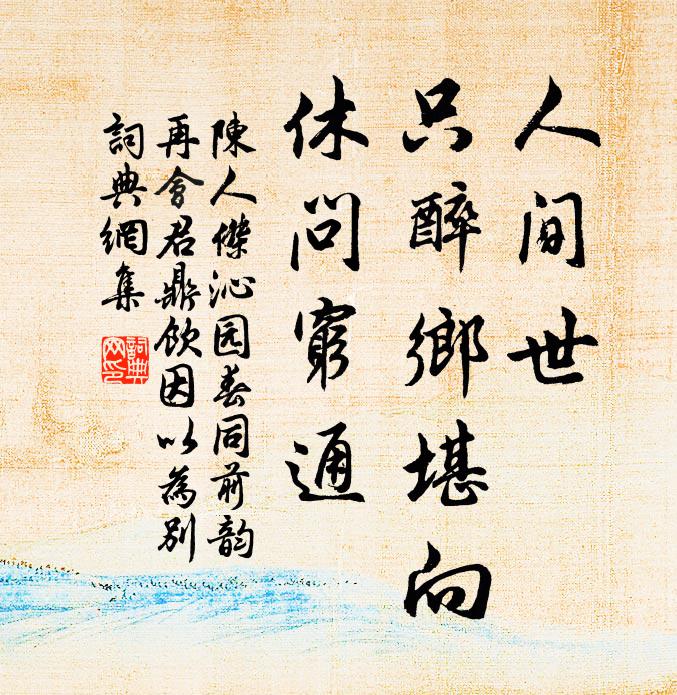 人间世
只醉鄉堪向
休问窮通
陳人傑沁园春同前韵
再會君鼎饮因以為别
詞典網集
詞典网印